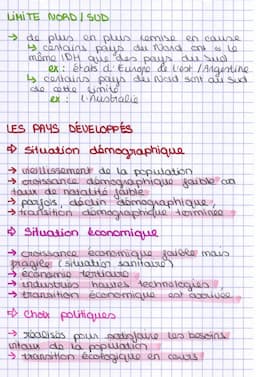 LIMITE NORD / SUD
→ de plus en plus remise en cause
↳ certains pays du Nord ont le
même IDH que des pays du Sud
ex : états d'Europe de l'est / Argentine
↳ certains pays du Nord sont au Sud
de cette limite
ex : l'Australie
LES PAYS DÉVELOPPÉS
⇒ Situation démographique
→ vieillissement de la population
→ croissance démographique faible car
taux de natalité faible
→ parfois, déclin démographique
→ transition démographique terminée
⇒ Situation économique
→ croissance économique faible mais
fragile (situation sanitaire)
→ économie tertiaire
→ industries hautes technologies
→ transition économique est
⇒ Choix politiques
→ réalisés pour satisfaire les besoins
de la population
→ transition écologique en cours